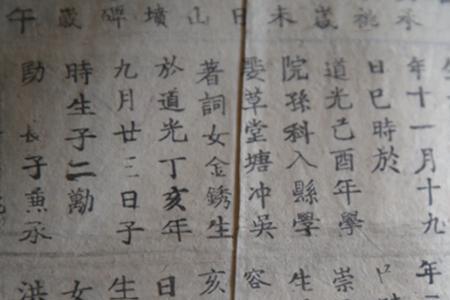 歲
未
日
山
墳
碑
歲
午
年十一月十九
日巳時於
道光己酉年學
院孫科入縣學
娶草堂塘冲吳
著詞女金銹生
於道光丁亥年
九月廿三日子
時生子二勷
勛長子兼承
年
崇
生
容
亥
日
生
女
洪